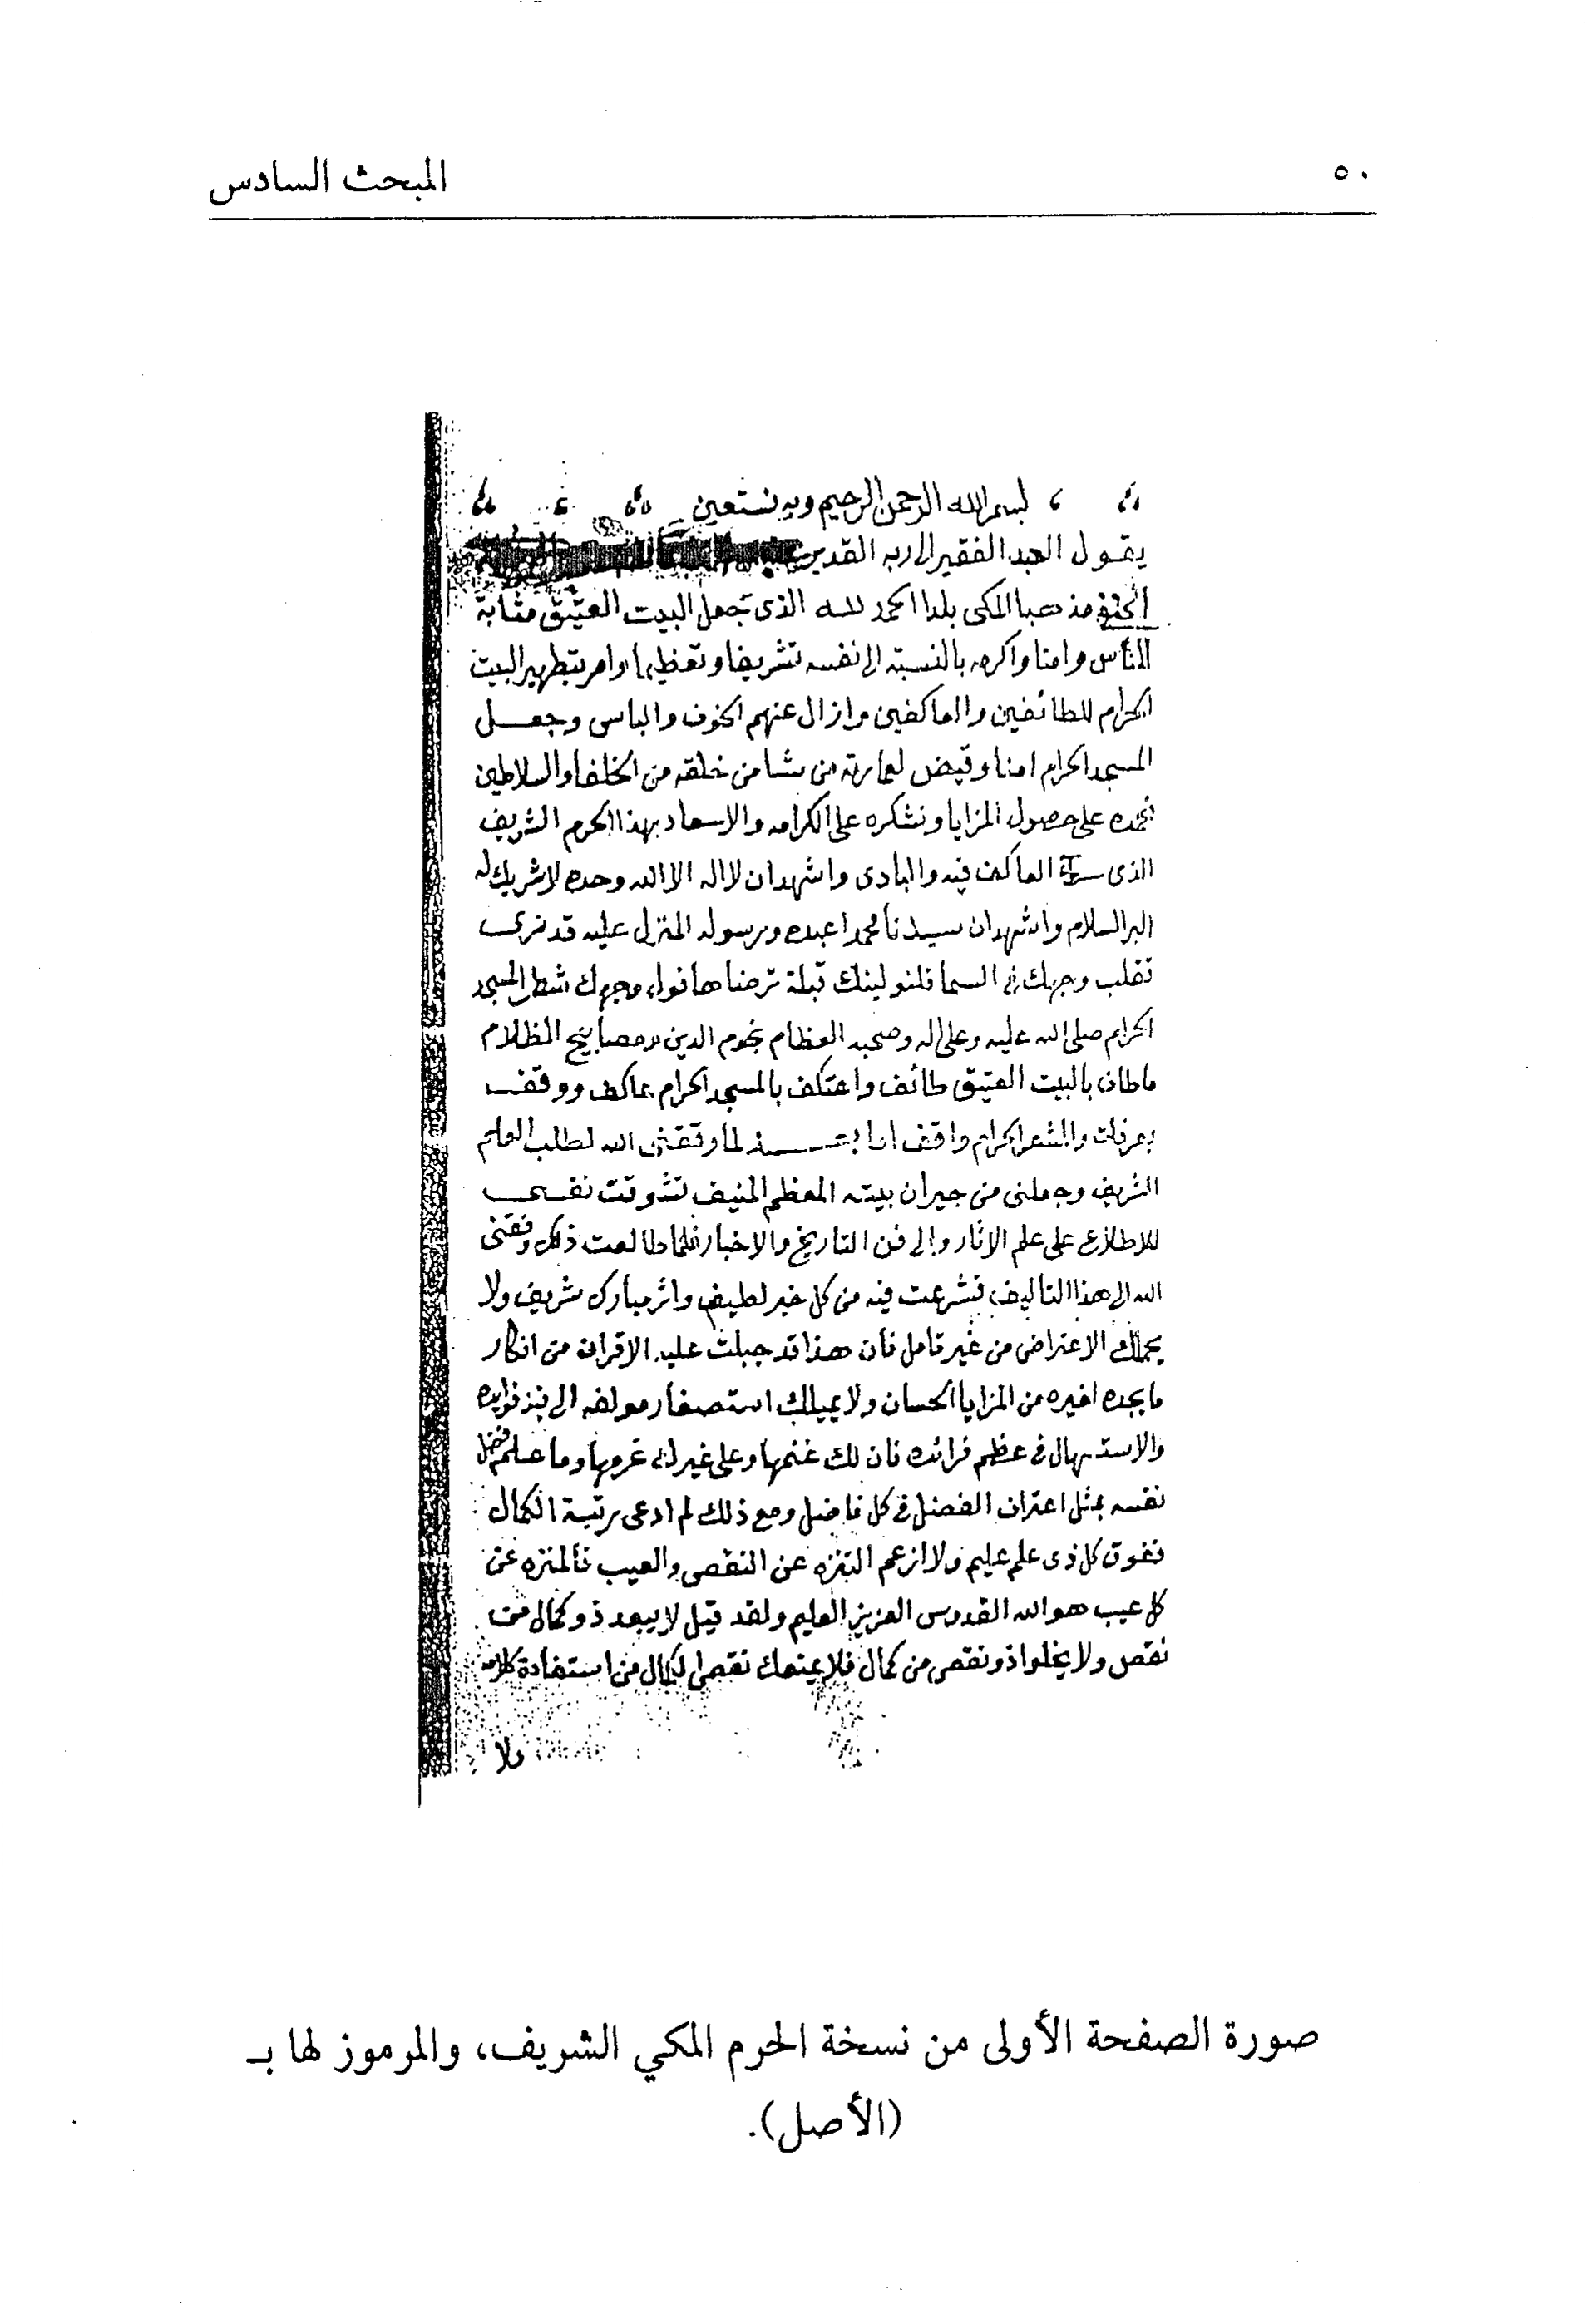 ٥٠
المبحث السادس
بسم الله الرحمن الرحيم وبه نستعين
يقول العبد الفقير الى ربه القدير
الحنفي مذهبا المكى بلدا الحمد لله الذى جعل البيت العتيق مثابة
للناس وامنا واكرمه بالنسبة الى نفسه تشريفا وتعظيما وامر بتطهير البيت
الحرام للطائفين والعاكفين وازال عنهم الخوف والباس وجعل
المسجد الحرام امنا وقيض لعمارته من يشا من خلقه من الخلفا والسلاطين
نحمده على حصول المزايا ونشكره على الكرامه والاسعاد بهذا الحرم الشريف
الذى سوآ العاكف فيه والبادى واشهد ان لا اله الا الله وحده لا شريك له
البر السلام واشهد ان سيدنا محمدا عبده ورسوله المنزل عليه قد نرى
تقلب وجهك فى السما فلنولينك قبلة ترضاها فول وجهك شطر المسجد
الحرام صلى الله عليه وعلى اله وصحبه العظام نجوم الدين ومصابيح الظلام
ما طاف بالبيت العتيق طائف واعتكف بالمسجد الحرام عاكف ووقف
بعرفات والمشعر الحرام واقف اما بعد لما وفقنى الله لطلب العلم
الشريف وجعلنى من جيران بيته المعظم المنيف تشوقت نفسى
للاطلاع على علم الاثار والى فن التاريخ والاخبار فلما طالعت ذلك وفقنى
الله الى هذا التاليف فشرعت فيه من كل خبر لطيف واثر مبارك شريف ولا
يحملك الاعتراض من غير تامل فان هذا قد جبلت عليه الاقران من انكار
ما يجده لغيره من المزايا الحسان ولا يميلك استصغار مولفه الى نبذ فوايده
والاستهال فى عظم فرائده فان لك غنمها وعلى غيرك غرمها وما علم فضل
نفسه بمثل اعتراف الفضل فى كل فاضل ومع ذلك لم ادعى رتبة الكمال
ففوق كل ذى علم عليم ولا ازعم التنزه عن النقص والعيب فالمنزه عن
كل عيب هو الله القدوس العزيز العليم ولقد قيل لا يبعد ذو كمال من
نقص ولا يخلوا ذو نقص من كمال فلا يمنعك نقص الكمال من استفادة كلامه
ولا
صورة الصفحة الأولى من نسخة الحرم المكي الشريف، والمرموز لها بـ
(الأصل).